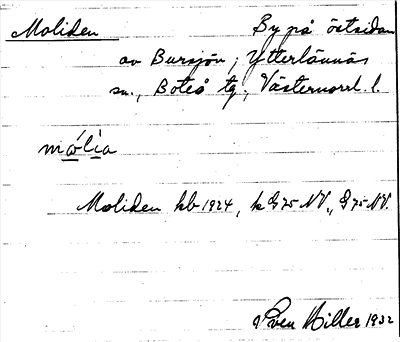 Moliden By på östsidan
av Bursjön, Ytterlännäs
sn., Boteå tg., Västernorrl. l.
mɷ́lìa
Moliden kb 1924, k G75 NV., G 75 NV.
Sven Hiller 1932